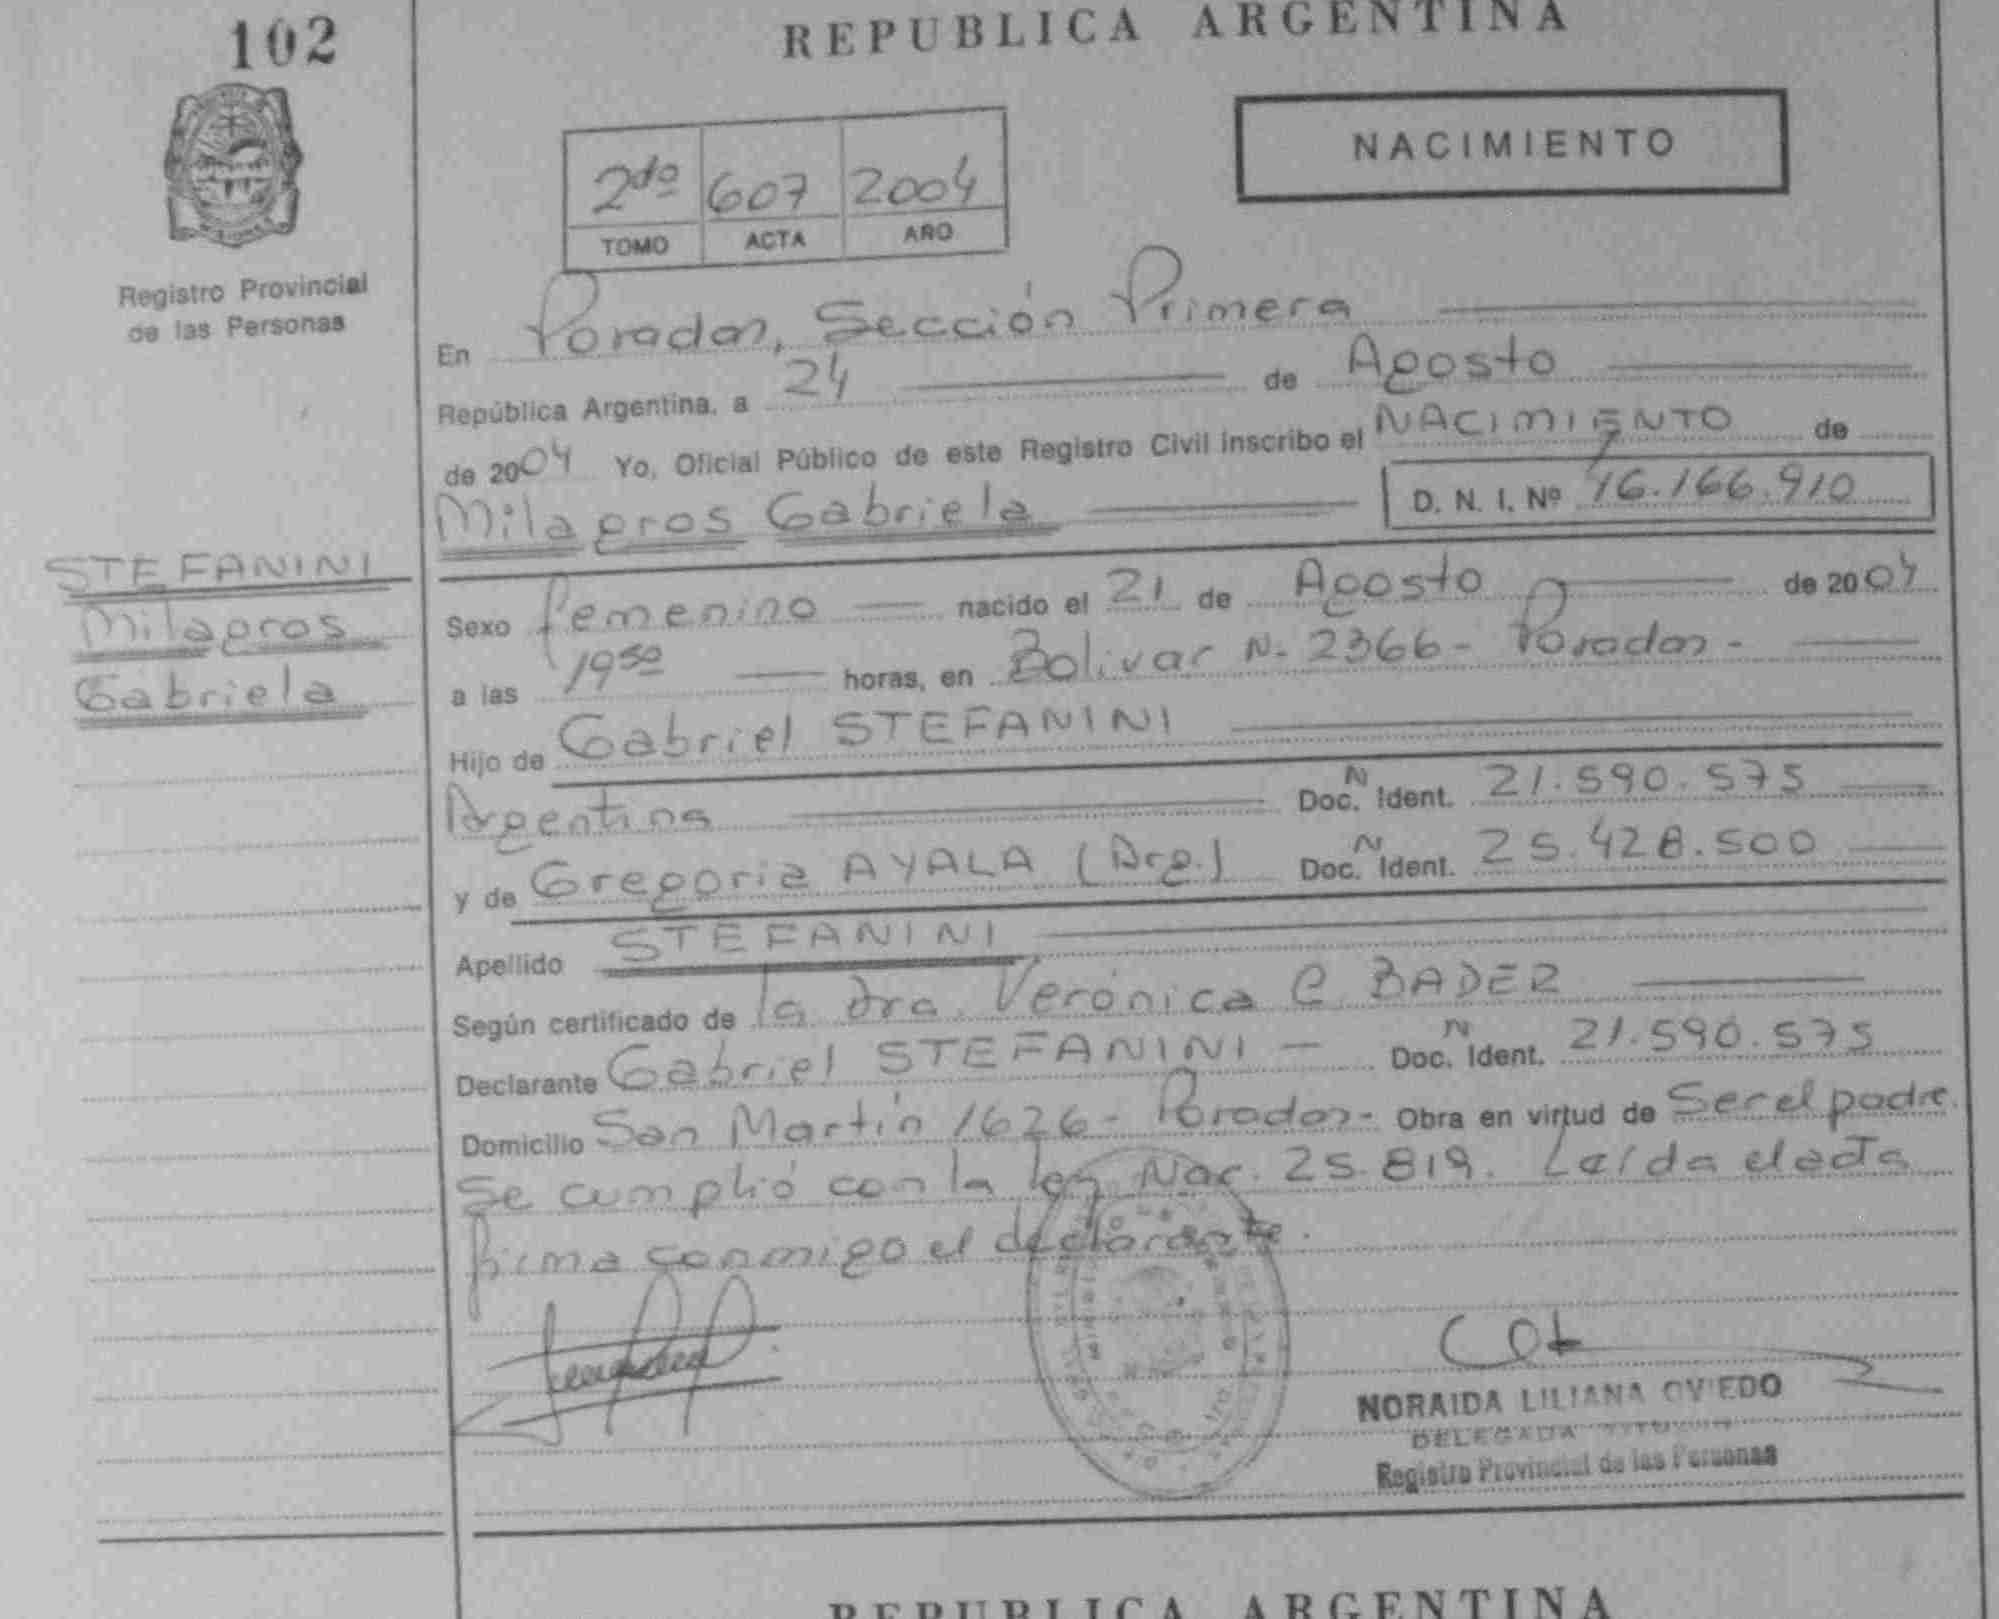 102
REPUBLICA ARGENTINA
NACIMIENTO
2do 607 2004
TOMO ACTA AÑO
Registro Provincial
de las Personas
En Posadas, Sección Primera
República Argentina, a 24 de Agosto
de 2004 Yo, Oficial Público de este Registro Civil inscribo el NACIMIENTO de
Milagros Gabriela D. N. I. Nº 16.166.910
STEFANINI
Milagros
Gabriela
Sexo femenino nacido el 21 de Agosto de 2004
a las 19 50 horas, en Bolivar N- 2366- Posadas-
Hijo de Gabriel STEFANINI
Argentina Doc. N Ident. 21.590.575
y de Gregoria AYALA (Arg.) Doc. N Ident. 25.428.500
Apellido STEFANINI
Según certificado de la dra. Verónica C. BADER
Declarante Gabriel STEFANINI - Doc. N Ident. 21.590.575
Domicilio San Martín 1626- Posadas- Obra en virtud de Ser el padre.
Se cumplió con la ley Nac. 25.819. Leída el acta
firma conmigo el declarante.
NORAIDA LILIANA OVIEDO
DELEGADA TITULAR
Registro Provincial de las Personas
REPUBLICA ARGENTINA